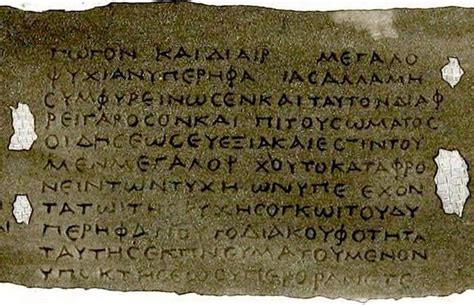 ΓΩΓΟΝ ΚΑΙΔΙΑΙΡ ΜΕΓΑΛΟ
ΨΥΧΙΑΝΥΠΕΡΗΦΑ ΙΑϹΑΛΛΑΜΗ
ϹΥΜΦΥΡΕΙΝΩϹΕΝΚΑΙΤΑΥΤΟΝΔΙΑΦ
ΡΕΙΓΑΡΟϹΟΝΚΑΙ ΠΙΤΟΥϹΩΜΑΤΟϹ
ΟΙΔΗϹΕΩϹΕΥΕΞΙΑΚΑΙΕϹΤΙΝΤΟΥ
ΜΕΝΜΕΓΑΛΟΨ ΧΟΥΤΟΚΑΤΑΦΡΟ
ΝΕΙΝΤΩΝΤΥΧΗ ΩΝΥΠΕ ΕΧΟΝ
ΤΑΤΩΙΤΗ ΨΥΧΗϹΟΓΚΩΙΤΟΥΔΥ
ΠΕΡΗΦΑΝΟ ΤΟΔΙΑΚΟΥΦΟΤΗΤΑ
ΤΑΥΤΗϹΕΚΠΝΕΥΜΑΤΟΥΜΕΝΟΝ
ΥΠΟΚΤΗϹΕΩϹ ΥΠΕΡΟΡΑ